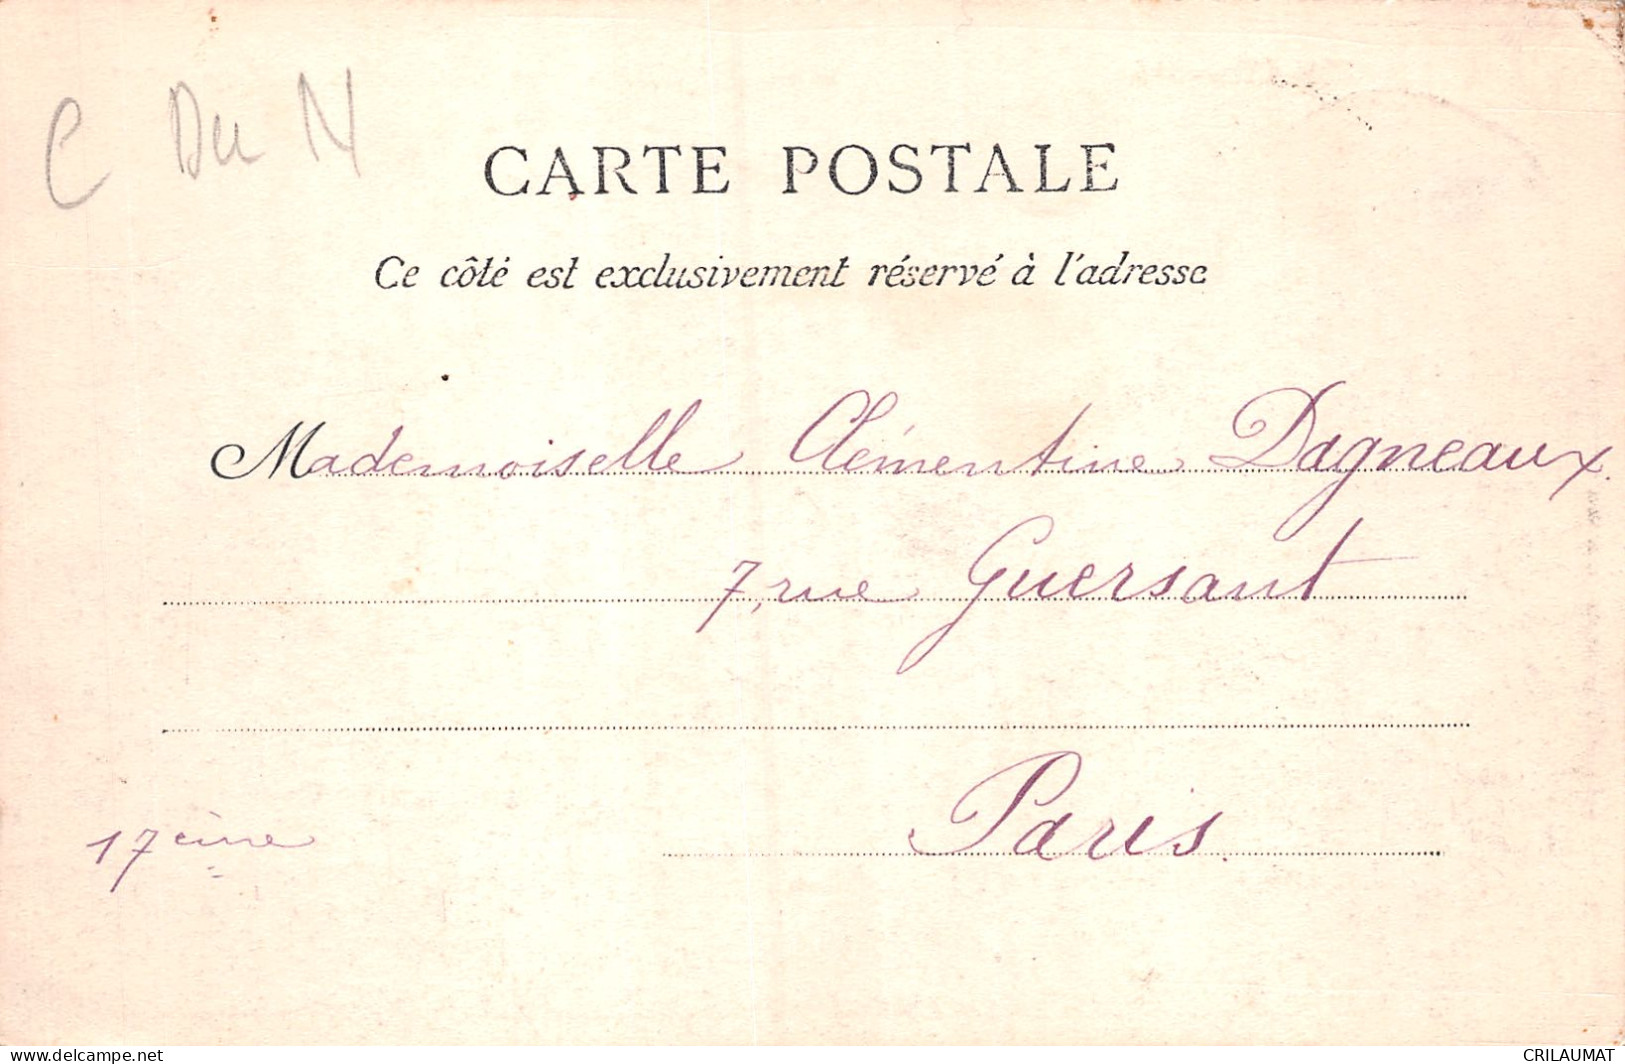 C Du N
CARTE POSTALE
Ce côté est exclusivement réservé à l'adresse
Mademoiselle Clémentine Dagneaux.
7, rue Guersant
Paris.
17ème
www.delcampe.net
CRILAUMAT